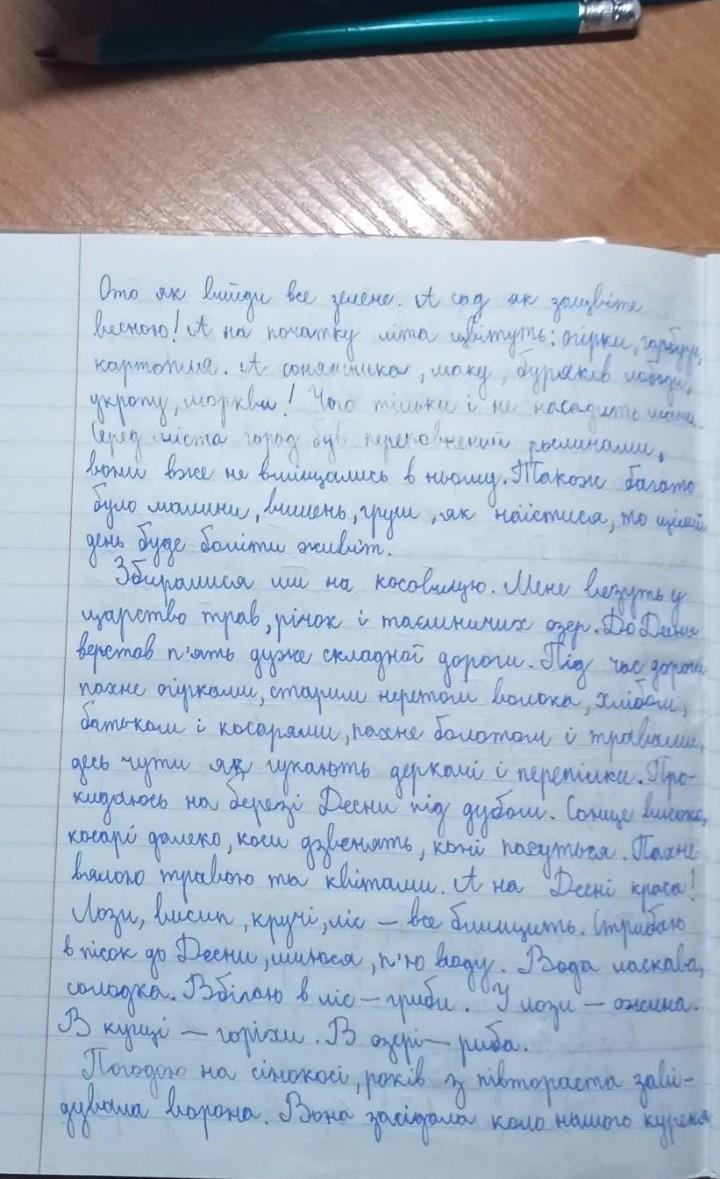 Ото як вийди все зелене. А сад як зацвіте
весною! А на початку літа цвітуть: огірки, гарбузи,
картопля. А соняшника, маку, буряків лободи,
укропу, моркви! Чого тільки і не насадить мати.
Серед міста город був переповнений рослинами,
вони вже не вміщались в ньому. Також багато
було малини, вишень, груш, як наїстися, то цілий
день буде боліти живіт.
Збиралися ми на косовицю. Мене везуть у
царство трав, річок і таємничих озер. До Десни
верстов п'ять дуже складної дороги. Під час дороги
пахне огірками, старим неретом волока, хлібом,
батьком і косарями, пахне болотом і травами,
десь чути як гукають деркачі і перепілки. Про-
кидаюсь на березі Десни під дубом. Сонце високо,
косарі далеко, коси дзвенять, коні пасуться. Пахне
вялою травою та квітами. А на Десні краса!
Лози, висип, кручі, ліс – все блищить. Стрибаю
в пісок до Десни, миюся, п'ю воду. Вода ласкава,
солодка. Вбігаю в ліс – гриби. У лози – ожина.
В кущі – горіхи. В озері – риба.
Погодою на сінокосі, років з півтораста заві-
дувала ворона. Вона засідала коло нашого куреня